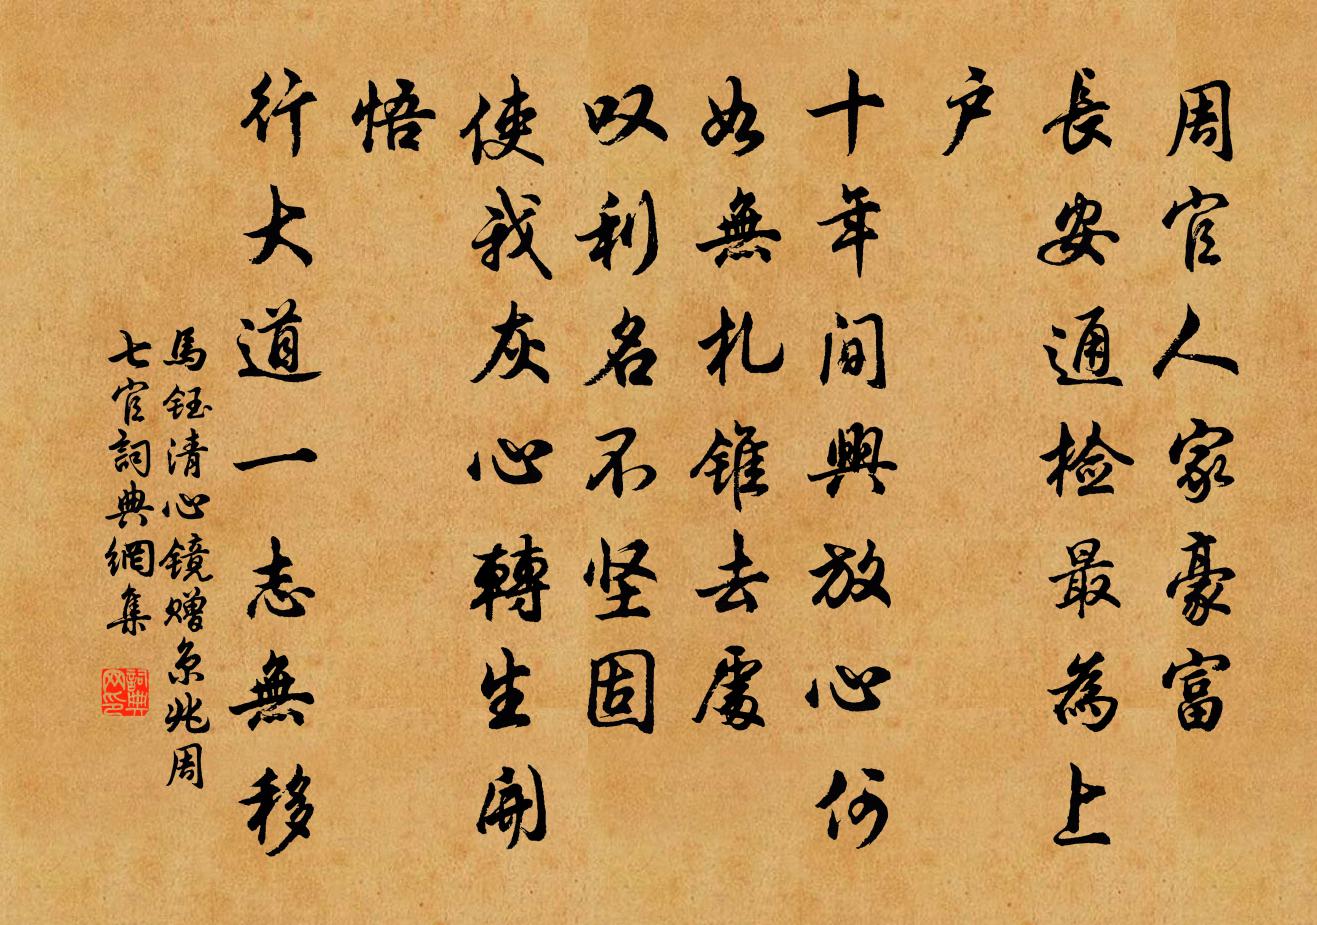 周官人家豪富
長安通檢最為上
户
十年間興放心何
如無札錐去處
叹利名不坚固
使我灰心轉生開
悟
行大道一志無移
馬鈺清心镜赠京兆周
七官詞典網集
詞典網印